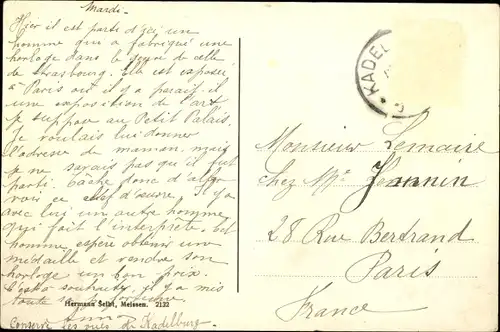 Mardi.
Hier il est parti d'ici un
homme qui a fabriqué une
horloge dans le genre de celle
de Strasbourg. Elle est exposée
à Paris où il y a paraît-il
une exposition de l'art
je suppose au Petit Palais.
Je voulais lui donner
l'adresse de maman, mais
je ne savais pas qu'il fut
parti. Tâche donc d'aller
voir ce chef d'œuvre, il y a
avec lui un autre homme
qui fait l'interprète. Cet
homme espère obtenir une
médaille et vendre son
horloge un bon prix.
C'est à souhaiter, il y a mis
toute sa
Anna
Conserve les vues de Kadelburg.
Hermann Seibt, Meissen. 7122
KADEL
Monsieur Lemaire
chez Mme Jannin
28 Rue Bertrand
Paris
France